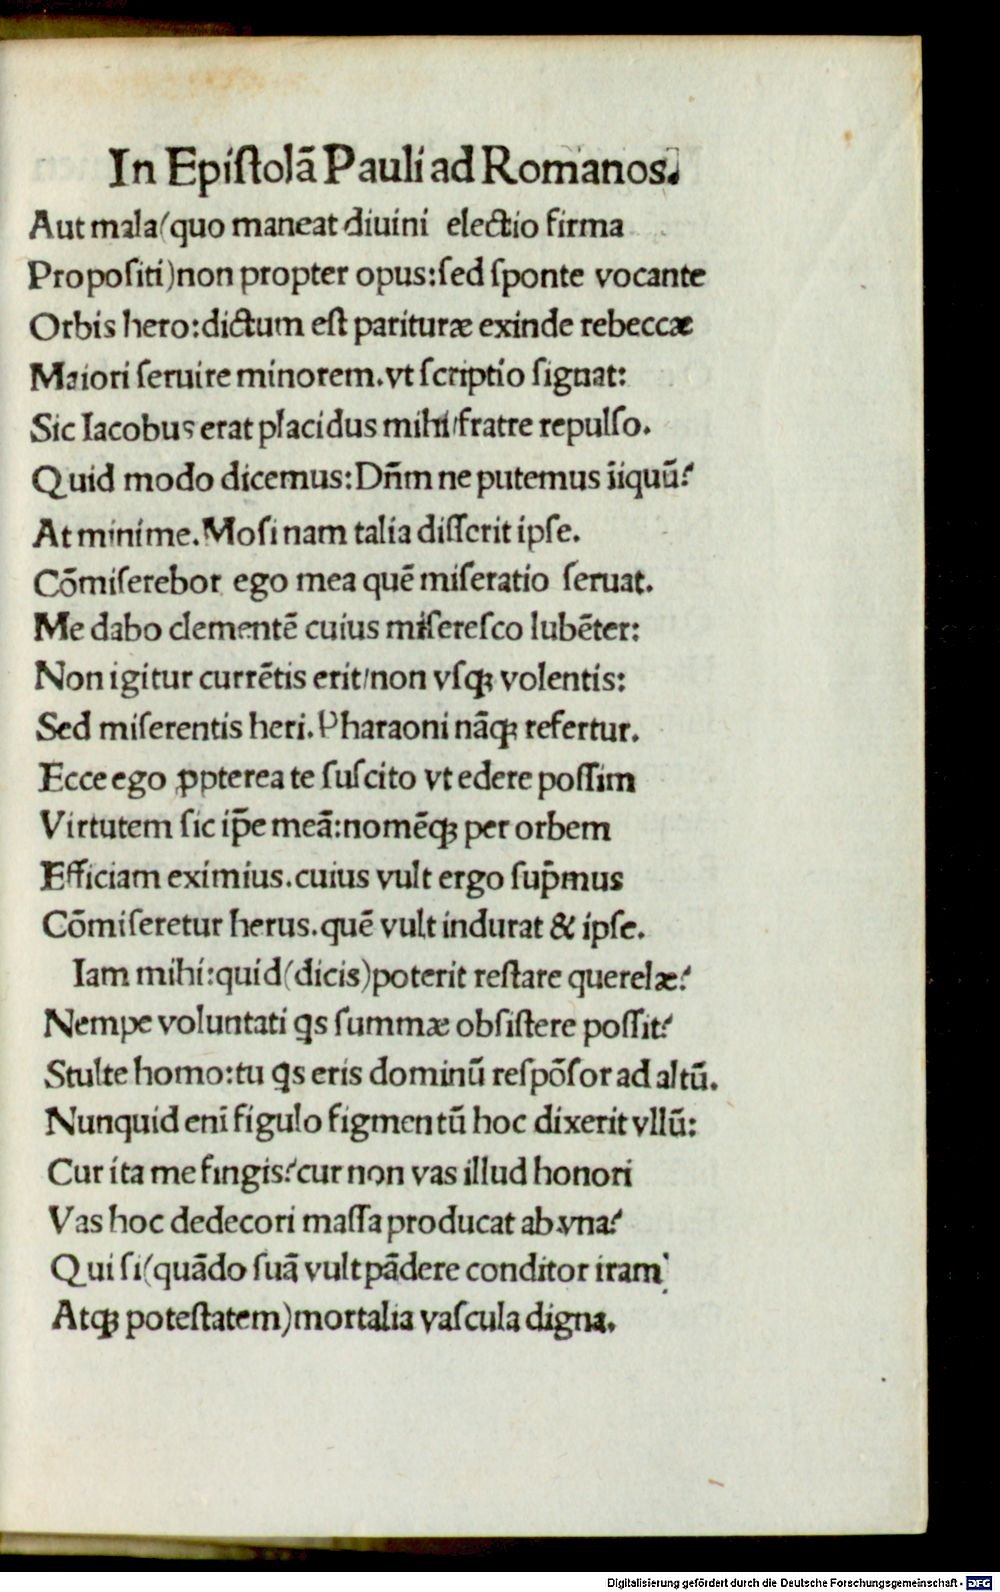 In Epiſtolā Pauli ad Romanos.
Aut mala(quo maneat diuini electio firma
Propoſiti)non propter opus:ſed ſponte vocante
Orbis hero:dictum eſt parituræ exinde rebeccæ
Maiori ſeruire minorem.vt ſcriptio ſignat:
Sic Iacobus erat placidus mihi/fratre repulſo.
Quid modo dicemus:Dn̄m ne putemus īiquū?
At minime.Moſi nam talia diſſerit ipſe.
Cōmiſerebor ego mea quē miſeratio ſeruat.
Me dabo clementē cuius miſereſco lubēter:
Non igitur currētis erit/non vſqꝫ volentis:
Sed miſerentis heri.Pharaoni nāqꝫ refertur.
Ecce ego ꝓpterea te ſuſcito vt edere poſſim
Virtutem ſic ip̄e meā:nomēqꝫ per orbem
Efficiam eximius.cuius vult ergo ſup̄mus
Cōmiſeretur herus.quē vult indurat & ipſe.
Iam mihi:quid(dicis)poterit reſtare querelæ?
Nempe voluntati ꝗs ſummæ obſiſtere poſſit?
Stulte homo:tu ꝗs eris dominū reſpōſor ad altū.
Nunquid enī figulo figmentū hoc dixerit vllū:
Cur ita me fingis?cur non vas illud honori
Vas hoc dedecori maſſa producat ab vna?
Qui ſi(quādo ſuā vult pādere conditor iram
Atqꝫ poteſtatem)mortalia vaſcula digna.
Digitalisierung gefördert durch die Deutsche Forschungsgemeinschaft - DFG